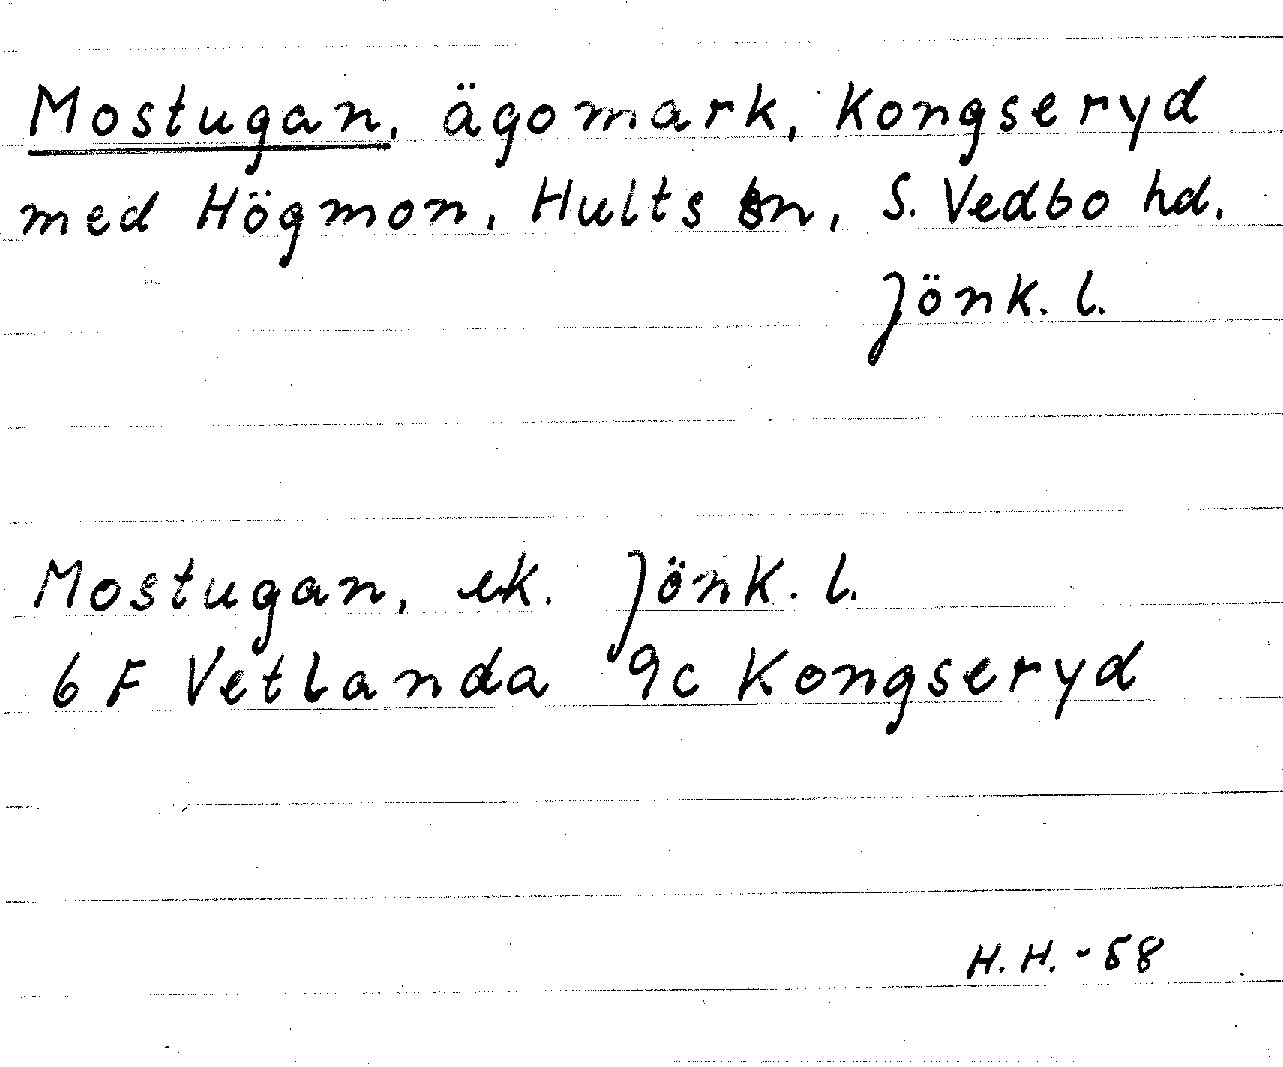 Mostugan, ägomark, Kongseryd
med Högmon, Hults sn, S. Vedbo hd.
Jönk. l.
Mostugan, ek. Jönk. l.
6 F Vetlanda 9c Kongseryd
H.H. -58